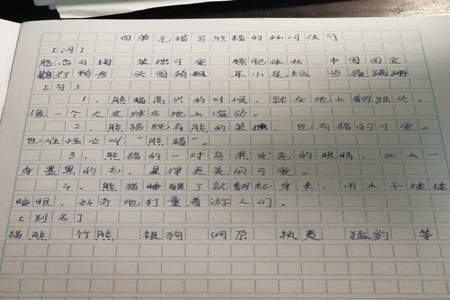 四单元描写熊猫的好词佳句
[词]
憨态可掬 笨拙可爱 矮肥体状 中国国宝
头圆颈粗 耳小尾短 步履蹒跚
[句]
1、熊猫高兴的时候,就在地上翻跟头,
像一个大皮球在地上滚动。
2、熊猫既有熊的笨拙,也有猫的可爱。
也难怪它叫“熊猫”。
3、熊猫的一对乌黑发亮的眼睛,加上一
身黑的毛,显得更美丽可爱。
4、熊猫睡醒了就翻起身来,用爪子揉揉
睡眼,好奇地打量着游人们。
[别名]
猫熊 竹熊 银狗 洞尕 执夷 猛豹 等